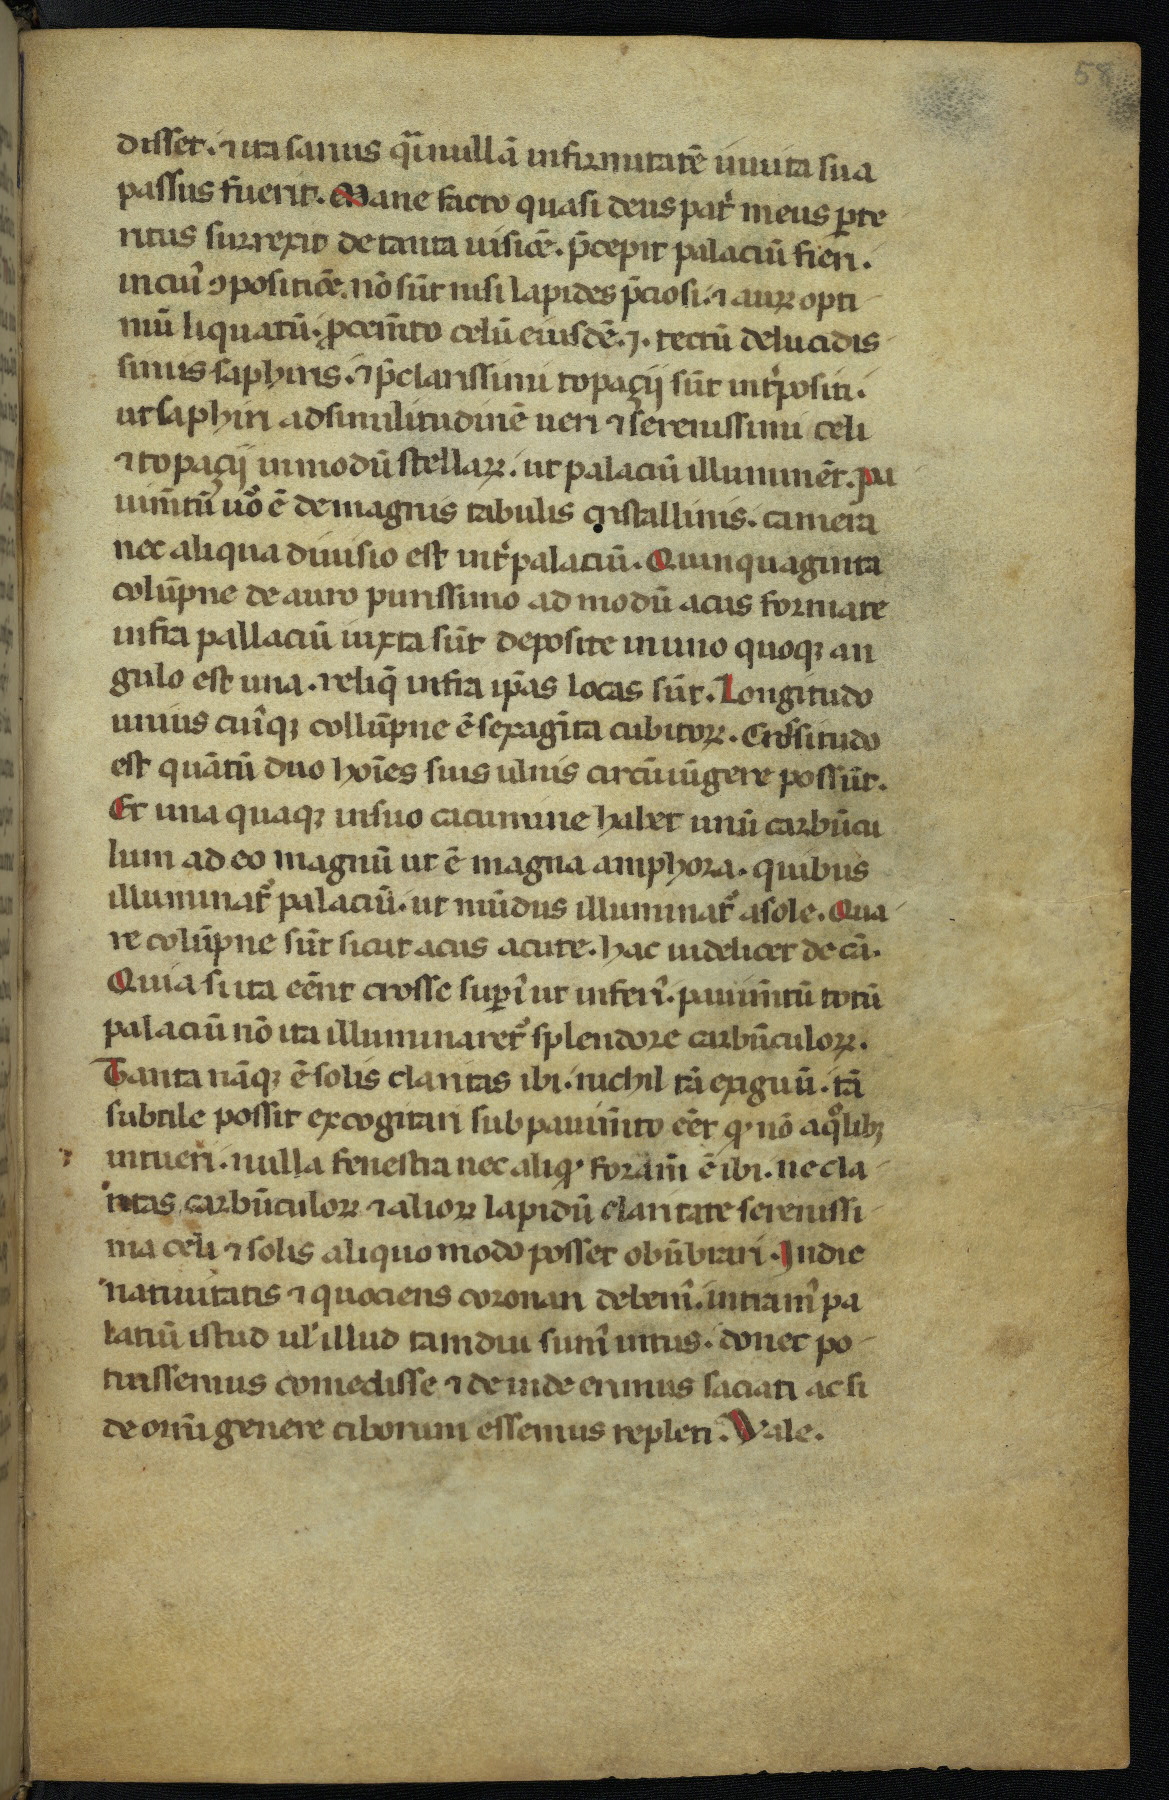 58
disset. ⁊ ita sanus q̈ i nullā infirmitatē inuita sua
passus fuerit. Mane facto quasi deus pat̉ meus p̱te
ritus surrexit de tanta uisiōe. p̄cepit palaciū fieri.
in cui᷒ ꝯpositiōe. nō sūt nisi lapides p̄ciosi. ⁊ auꝝ opti-
mū liquatū. ꝓ cem̄to celū eiusdē .ı. tectū de lucidis-
simis saphiris. ⁊ p̄clarissimi topaçij sūt int̉positi.
ut saphiri ad similitudinē ueri ⁊ serenissimi celi
⁊ topaçij in modū stellaꝝ. ut palaciū illuminēt. Pa
uim̄tū uº ē de magnis tabulis cristallinis. camera
nec aliqua diuisio est int̉ palaciū. Quinquaginta
colūpne de auro purissimo ad modū acus formate
infra pallaciū iuxta sūt deposite in uno quoqꝫ an
gulo est una. reliq̄ infra ip̄as locas sūt. Longitudo
unius cui᷒qꝫ collūpne ē sexagīta cubitoꝝ. Crossitudo
est quātū duo hoīes suis ulnis circūiūgere possūt.
Et una quaqꝫ insuo cacumine habet unū carbūcu
lum ad eo magnū ut ē magna amphora. quibus
illuminat̉ palaciū. ut mūdus illuminat̉ asole. Qua-
re colūpne sūt sicut acus acute. hac uidelicet de cā.
Quia si ita eēnt crosse supi᷒ ut inferi᷒. pauim̄tū totū
palaciū nō ita illuminaret̉ splendore carbūculoꝝ.
Tanta nāqꝫ ē solis claritas ibi. nichil tā exiguū. tā
subtile possit excogitari sub pauim̄to eēt qͥ nō aqºlibꝫ
intueri. nulla fenestra nec aliqͥ foram̄ ē ibi. ne cla-
ritas carbūculoꝝ ⁊ alioꝝ lapidū claritate serenissi-
ma celi ⁊ solis aliquo modo posset obūbrari. In die
natiuitatis ⁊ quociens coronari debem᷒. intram᷒ pa
latiū istud ul̕ illud tam diu sum᷒ intus. donec po-
tuissemus comedisse ⁊ de inde erimus saciati ac si
de om̄i genere ciborum essemus repleti. Vale.